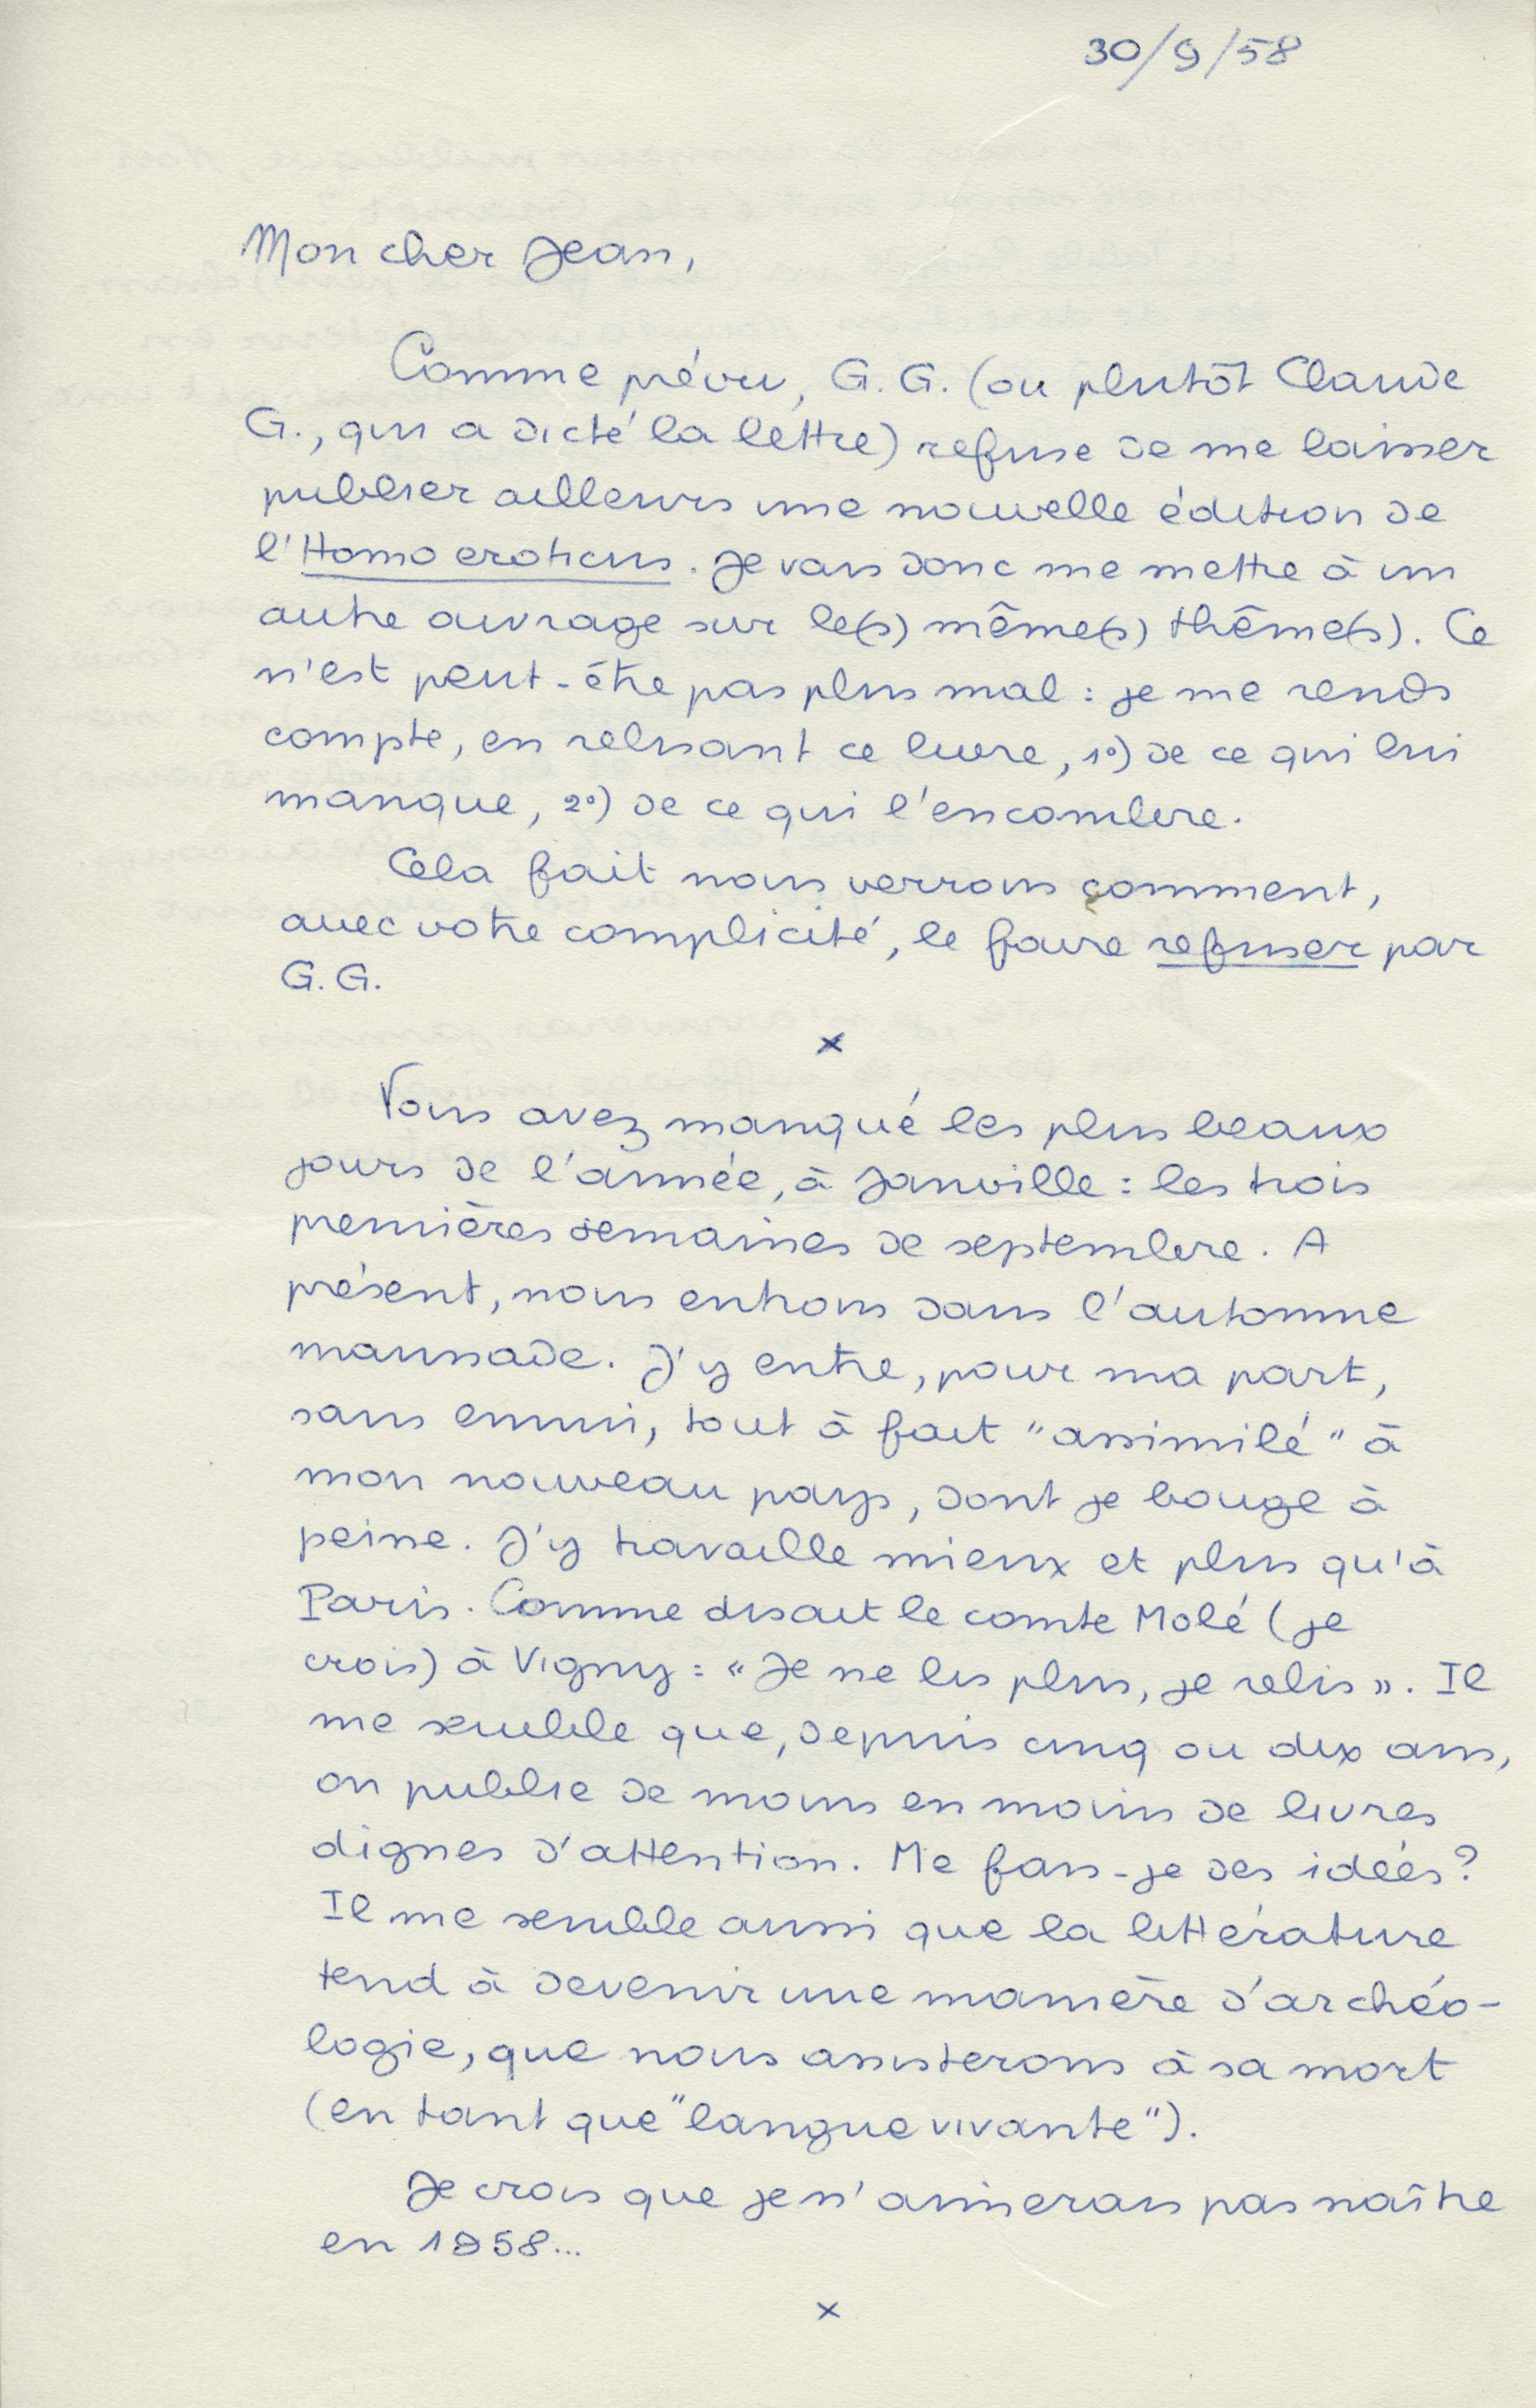 30/9/58
Mon cher Jean,
Comme prévu, G. G. (ou plutôt Claude
G., qui a dicté la lettre) refuse de me laisser
publier ailleurs une nouvelle édition de
l'Homo eroticus. Je vais donc me mettre à un
autre ouvrage sur le(s) même(s) thême(s). Ce
n'est peut-être pas plus mal : je me rends
compte, en relisant ce livre, 1°) de ce qui lui
manque, 2°) de ce qui l'encombre.
Cela fait nous verrons comment,
avec votre complicité, le faire refuser par
G. G.
x
Vous avez manqué les plus beaux
jours de l'année, à Janville : les trois
premières semaines de septembre. A
présent, nous entrons dans l'automne
maussade. J'y entre, pour ma part,
sans ennui, tout à fait "assimilé" à
mon nouveau pays, dont je bouge à
peine. J'y travaille mieux et plus qu'à
Paris. Comme disait le comte Molé (je
crois) à Vigny : « Je ne lis plus, je relis ». Il
me semble que, depuis cinq ou dix ans,
on publie de moins en moins de livres
dignes d'attention. Me fais-je des idées ?
Il me semble aussi que la littérature
tend à devenir une manière d'archéo-
logie, que nous assisterons à sa mort
(en tant que "langue vivante").
Je crois que je n'aimerais pas naître
en 1958...
x